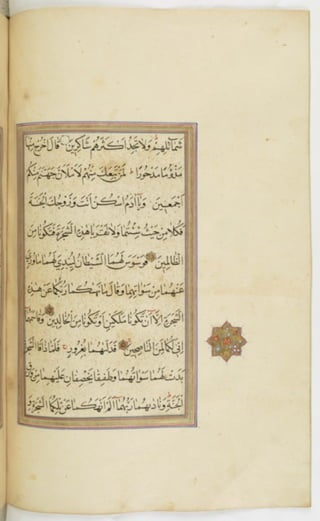 شمائلهم ولا تجد أكثرهم شاكرين قال اخرج منها
مذؤما مدحورا لمن تبعك منهم لأملأن جهنم منكم
أجمعين ويا آدم اسكن أنت وزوجك الجنة
فكلا من حيث شئتما ولا تقربا هذه الشجرة فتكونا من
الظالمين فوسوس لهما الشيطان ليبدي لهما ما ووري
عنهما من سوآتهما وقال ما نهكما ربكما عن هذه
الشجرة إلا أن تكونا ملكين أو تكونا من الخالدين وقاسمهما
إني لكما لمن الناصحين فدلهما بغرور فلما ذاقا الشجرة
بدت لهما سوآتهما وطفقا يخصفان عليهما من ورق
الجنة ونادىهما ربهما ألم أنهكما عن تلكما الشجرة و